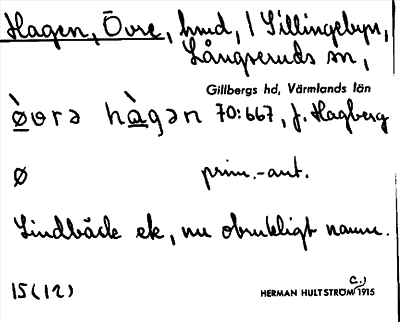 Hagen, Övre, hmd, i Sillingebyn,
Långseruds sn,
Gillbergs hd, Värmlands län
ø̀vrə hàgən 70:667, J. Hagberg
ø prim.-ant.
Lindbäck ek, nu obrukligt namn.
15(12) HERMAN HULTSTRÖM c.) 1915